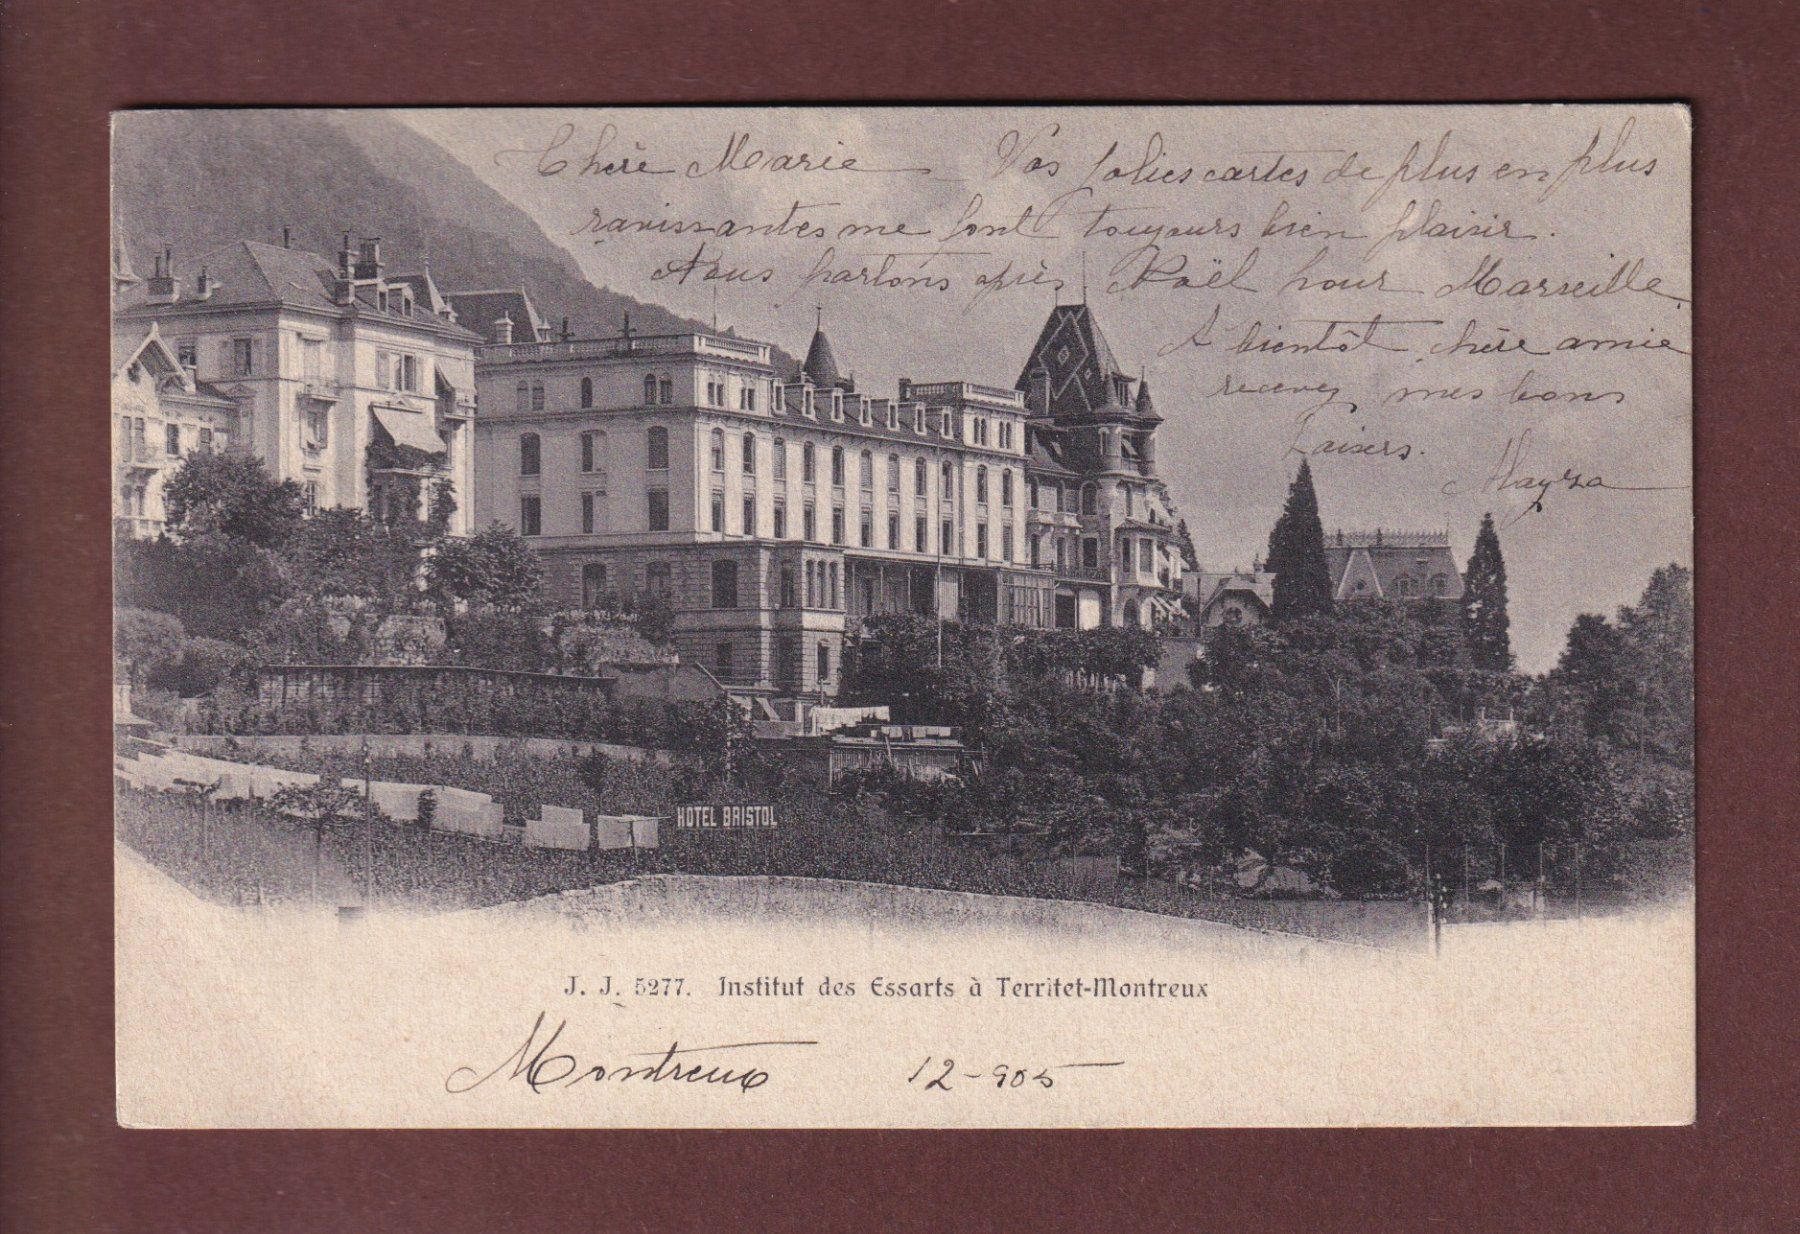 Chère Marie Vos jolies cartes de plus en plus
ravissantes me font toujours bien plaisir.
Nous partons après Noël pour Marseille.
A bientôt chère amie
recevez mes bons
baisers.
HOTEL BRISTOL
J. J. 5277. Institut des Essarts à Territet-Montreux
Montreux 12-905